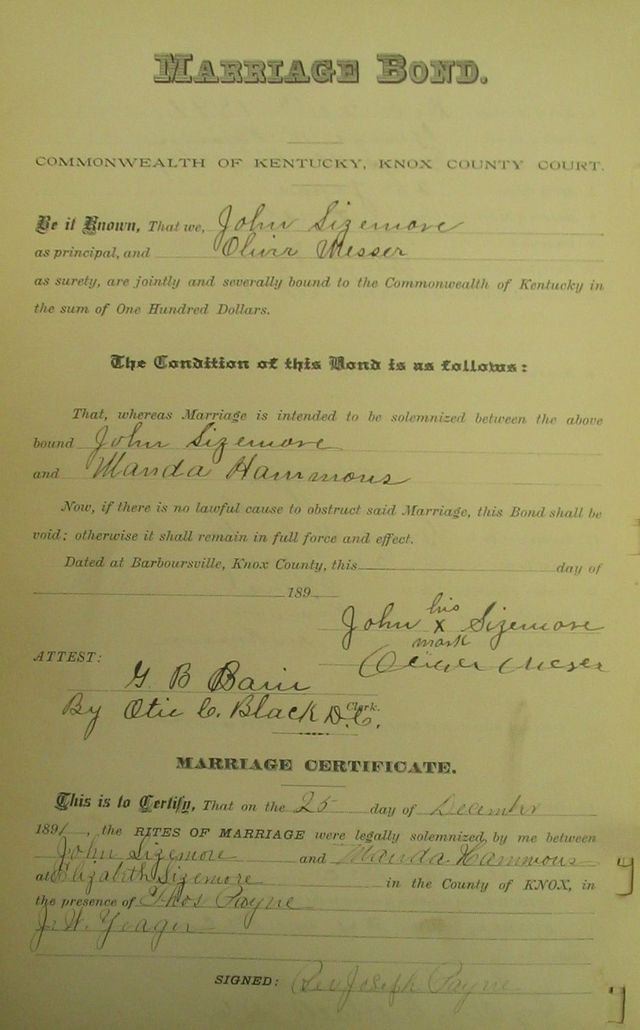 MARRIAGE BOND.
COMMONWEALTH OF KENTUCKY, KNOX COUNTY COURT.
Be it Known, That we, John Sizemore
as principal, and Olivir Messer
as surety, are jointly and severally bound to the Commonwealth of Kentucky in
the sum of One Hundred Dollars.
The Condition of this Bond is as follows:
That, whereas Marriage is intended to be solemnized between the above
bound John Sizemore
and Manda Hammons
Now, if there is no lawful cause to obstruct said Marriage, this Bond shall be
void; otherwise it shall remain in full force and effect.
Dated at Barboursville, Knox County, this day of
189
John his x mark Sizemore
Oliver Meser
ATTEST:
G B Bain
By Otic C. Black D.C. Clerk.
MARRIAGE CERTIFICATE.
This is to Certify, That on the 25 day of December
1891, the RITES OF MARRIAGE were legally solemnized by me between
John Sizemore and Manda Hammons
at Elizabeth Sizemore in the County of KNOX, in
the presence of Thos Payne
J. W. Yeager
SIGNED: Rev Joseph Payne